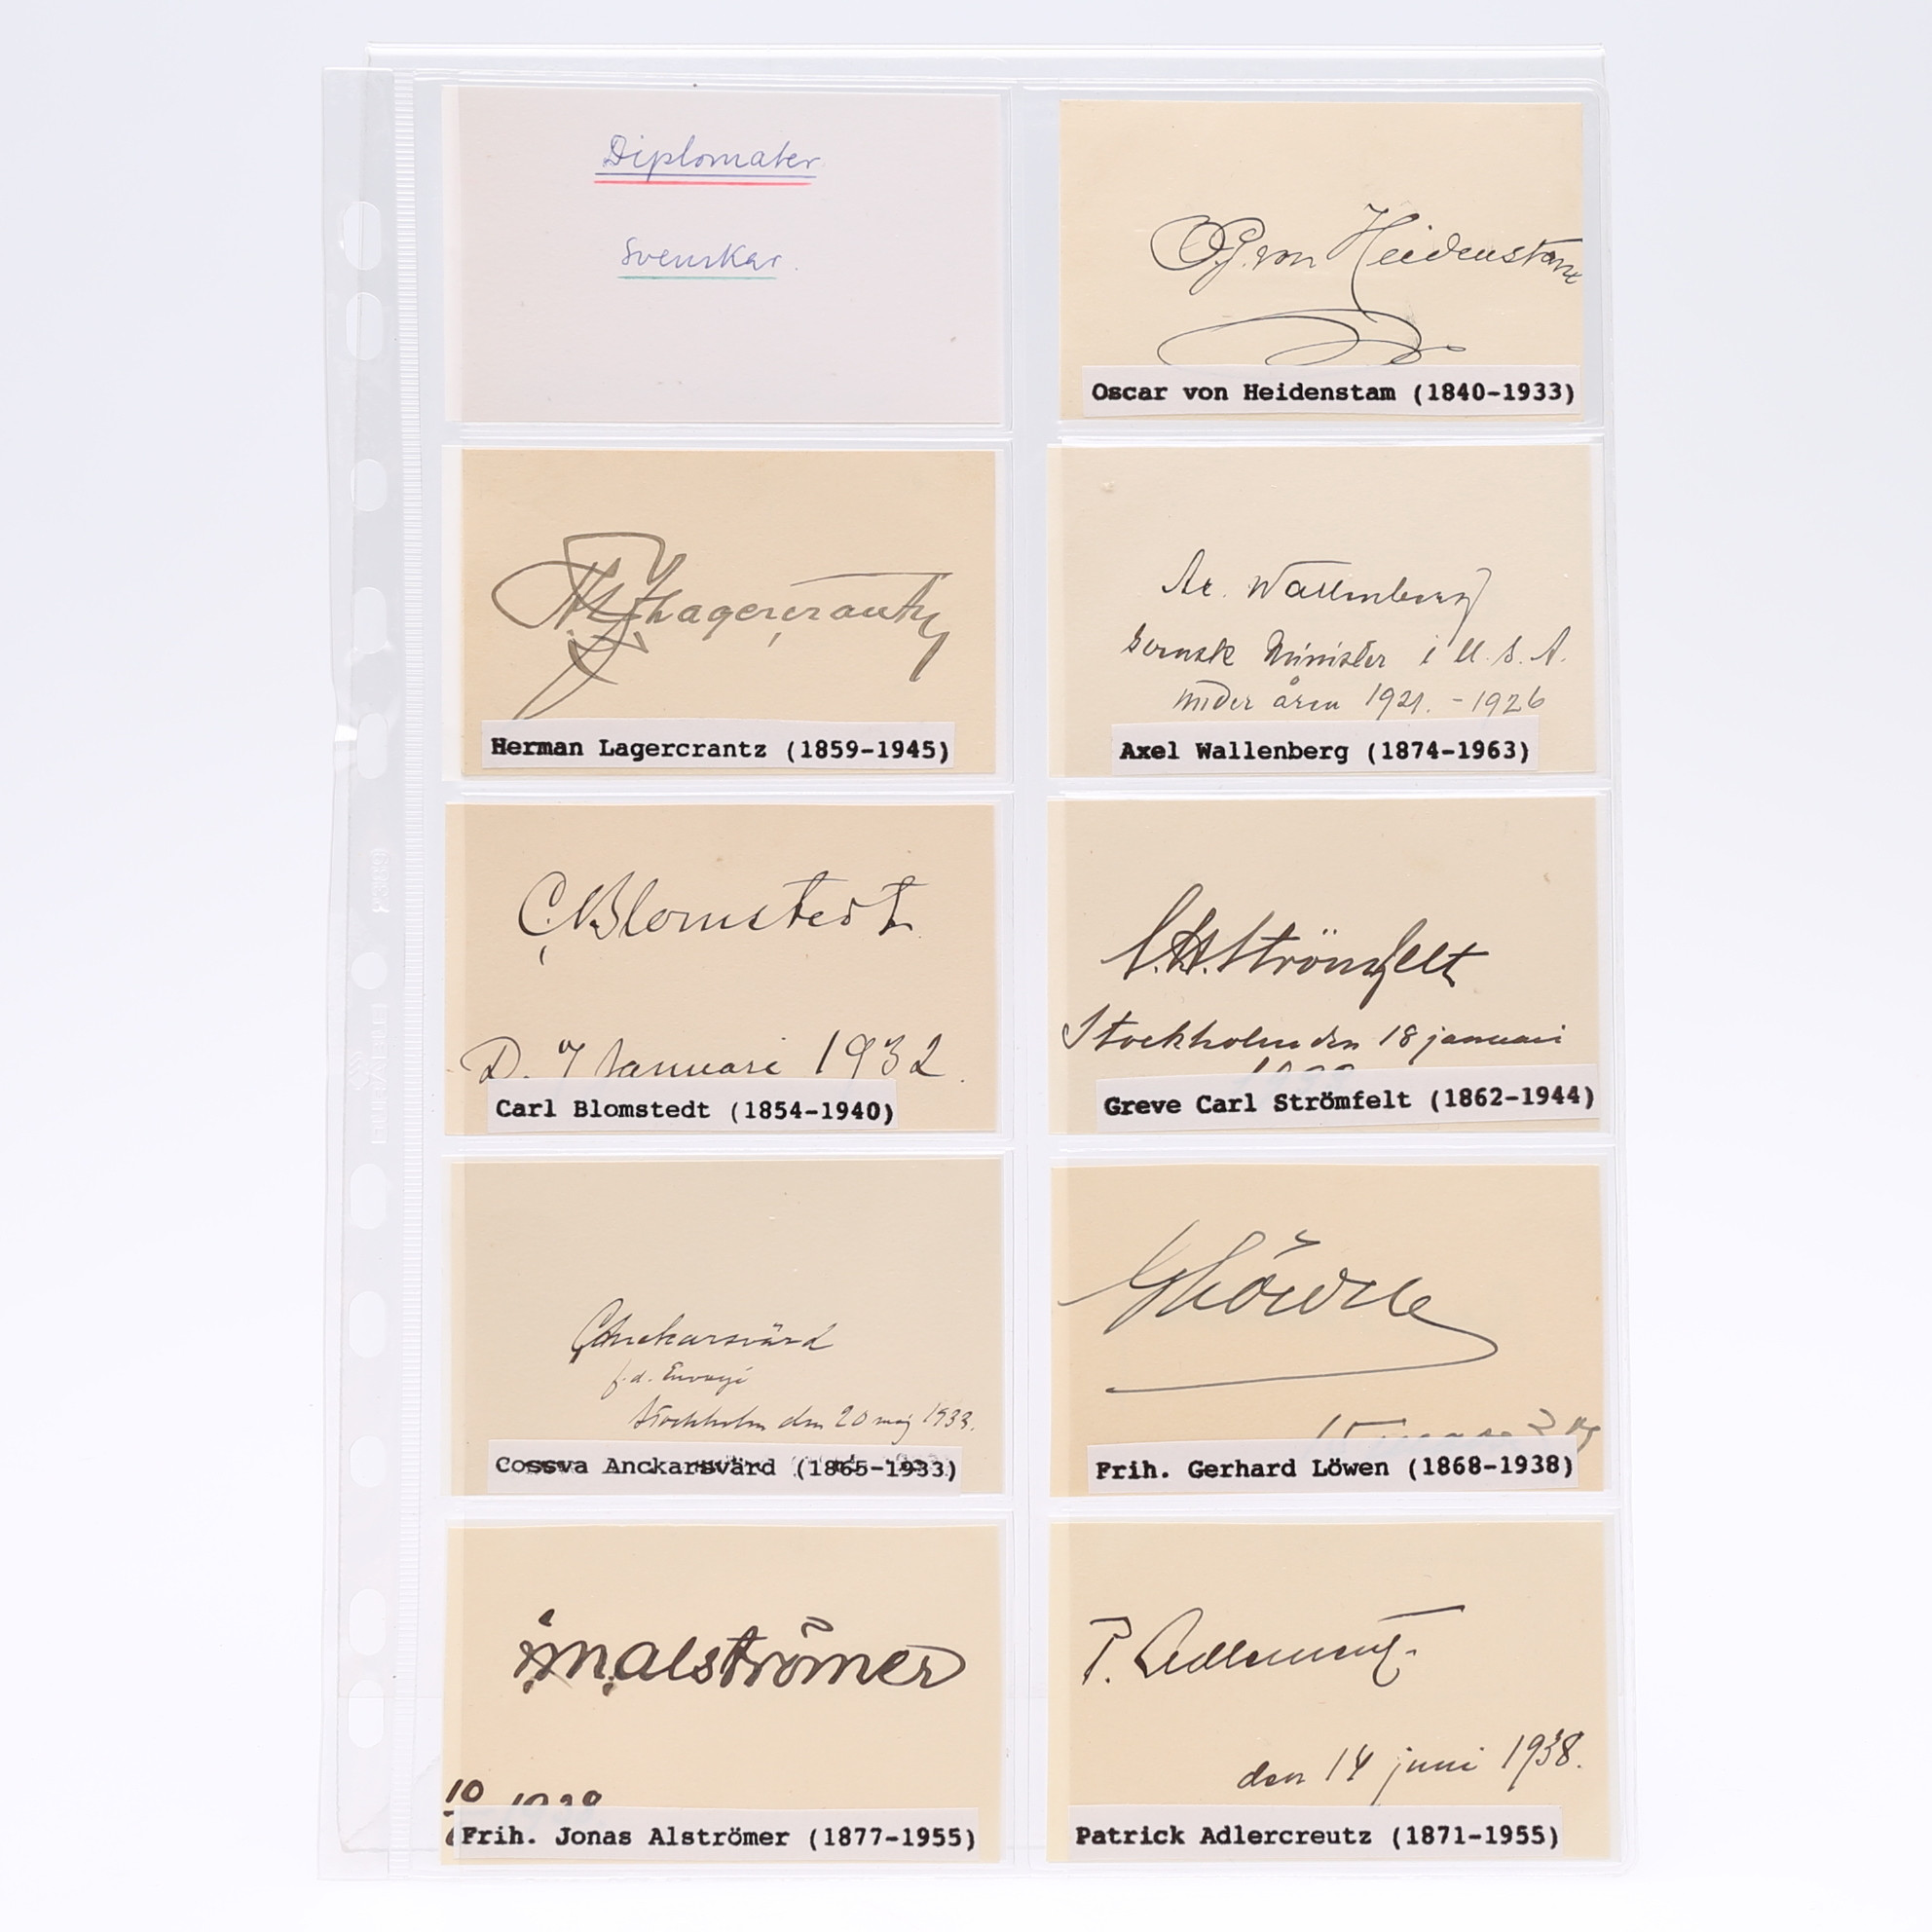 Diplomater
Svenskar.
O.G. von Heidenstam
Oscar von Heidenstam (1840-1933)
Lagercrantz
Herman Lagercrantz (1859-1945)
Ax. Wallenberg
Svensk Minister i U.S.A.
under åren 1921. - 1926
Axel Wallenberg (1874-1963)
C. Blomstedt
D. 7 Januari 1932.
Carl Blomstedt (1854-1940)
C.A. Strömfelt
Stockholm den 18 januari
Greve Carl Strömfelt (1862-1944)
CAnckarsvärd
f.d. Envoyé
Stockholm den 20 maj 1933.
Cossva Anckarsvärd (1865-1933)
GLöwen
15 mars
Frih. Gerhard Löwen (1868-1938)
J.M. Alströmer
10
Frih. Jonas Alströmer (1877-1955)
P. Adlercreutz
den 14 juni 1938.
Patrick Adlercreutz (1871-1955)